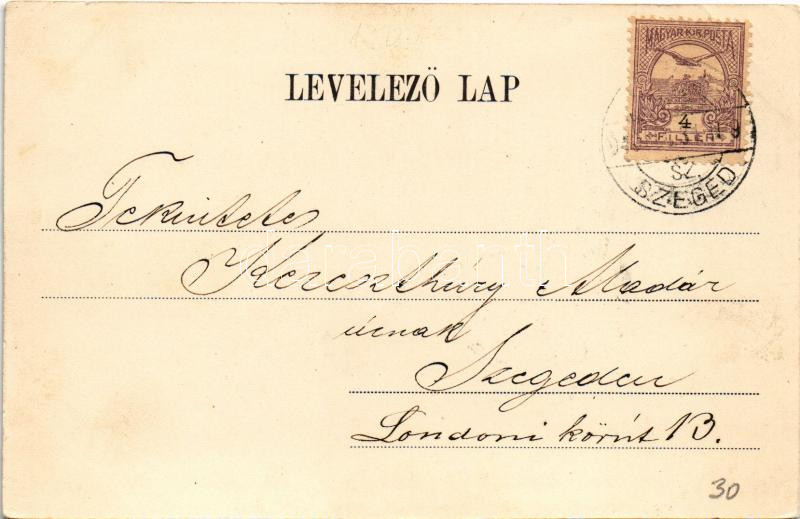 LEVELEZÖ LAP
MAGYAR KIR. POSTA
4
FILLÉR
SZEGED
Tekintetes
Kereszthúry Aladár
úrnak
Szegeden
Londoni körút 13.
30
darabanth